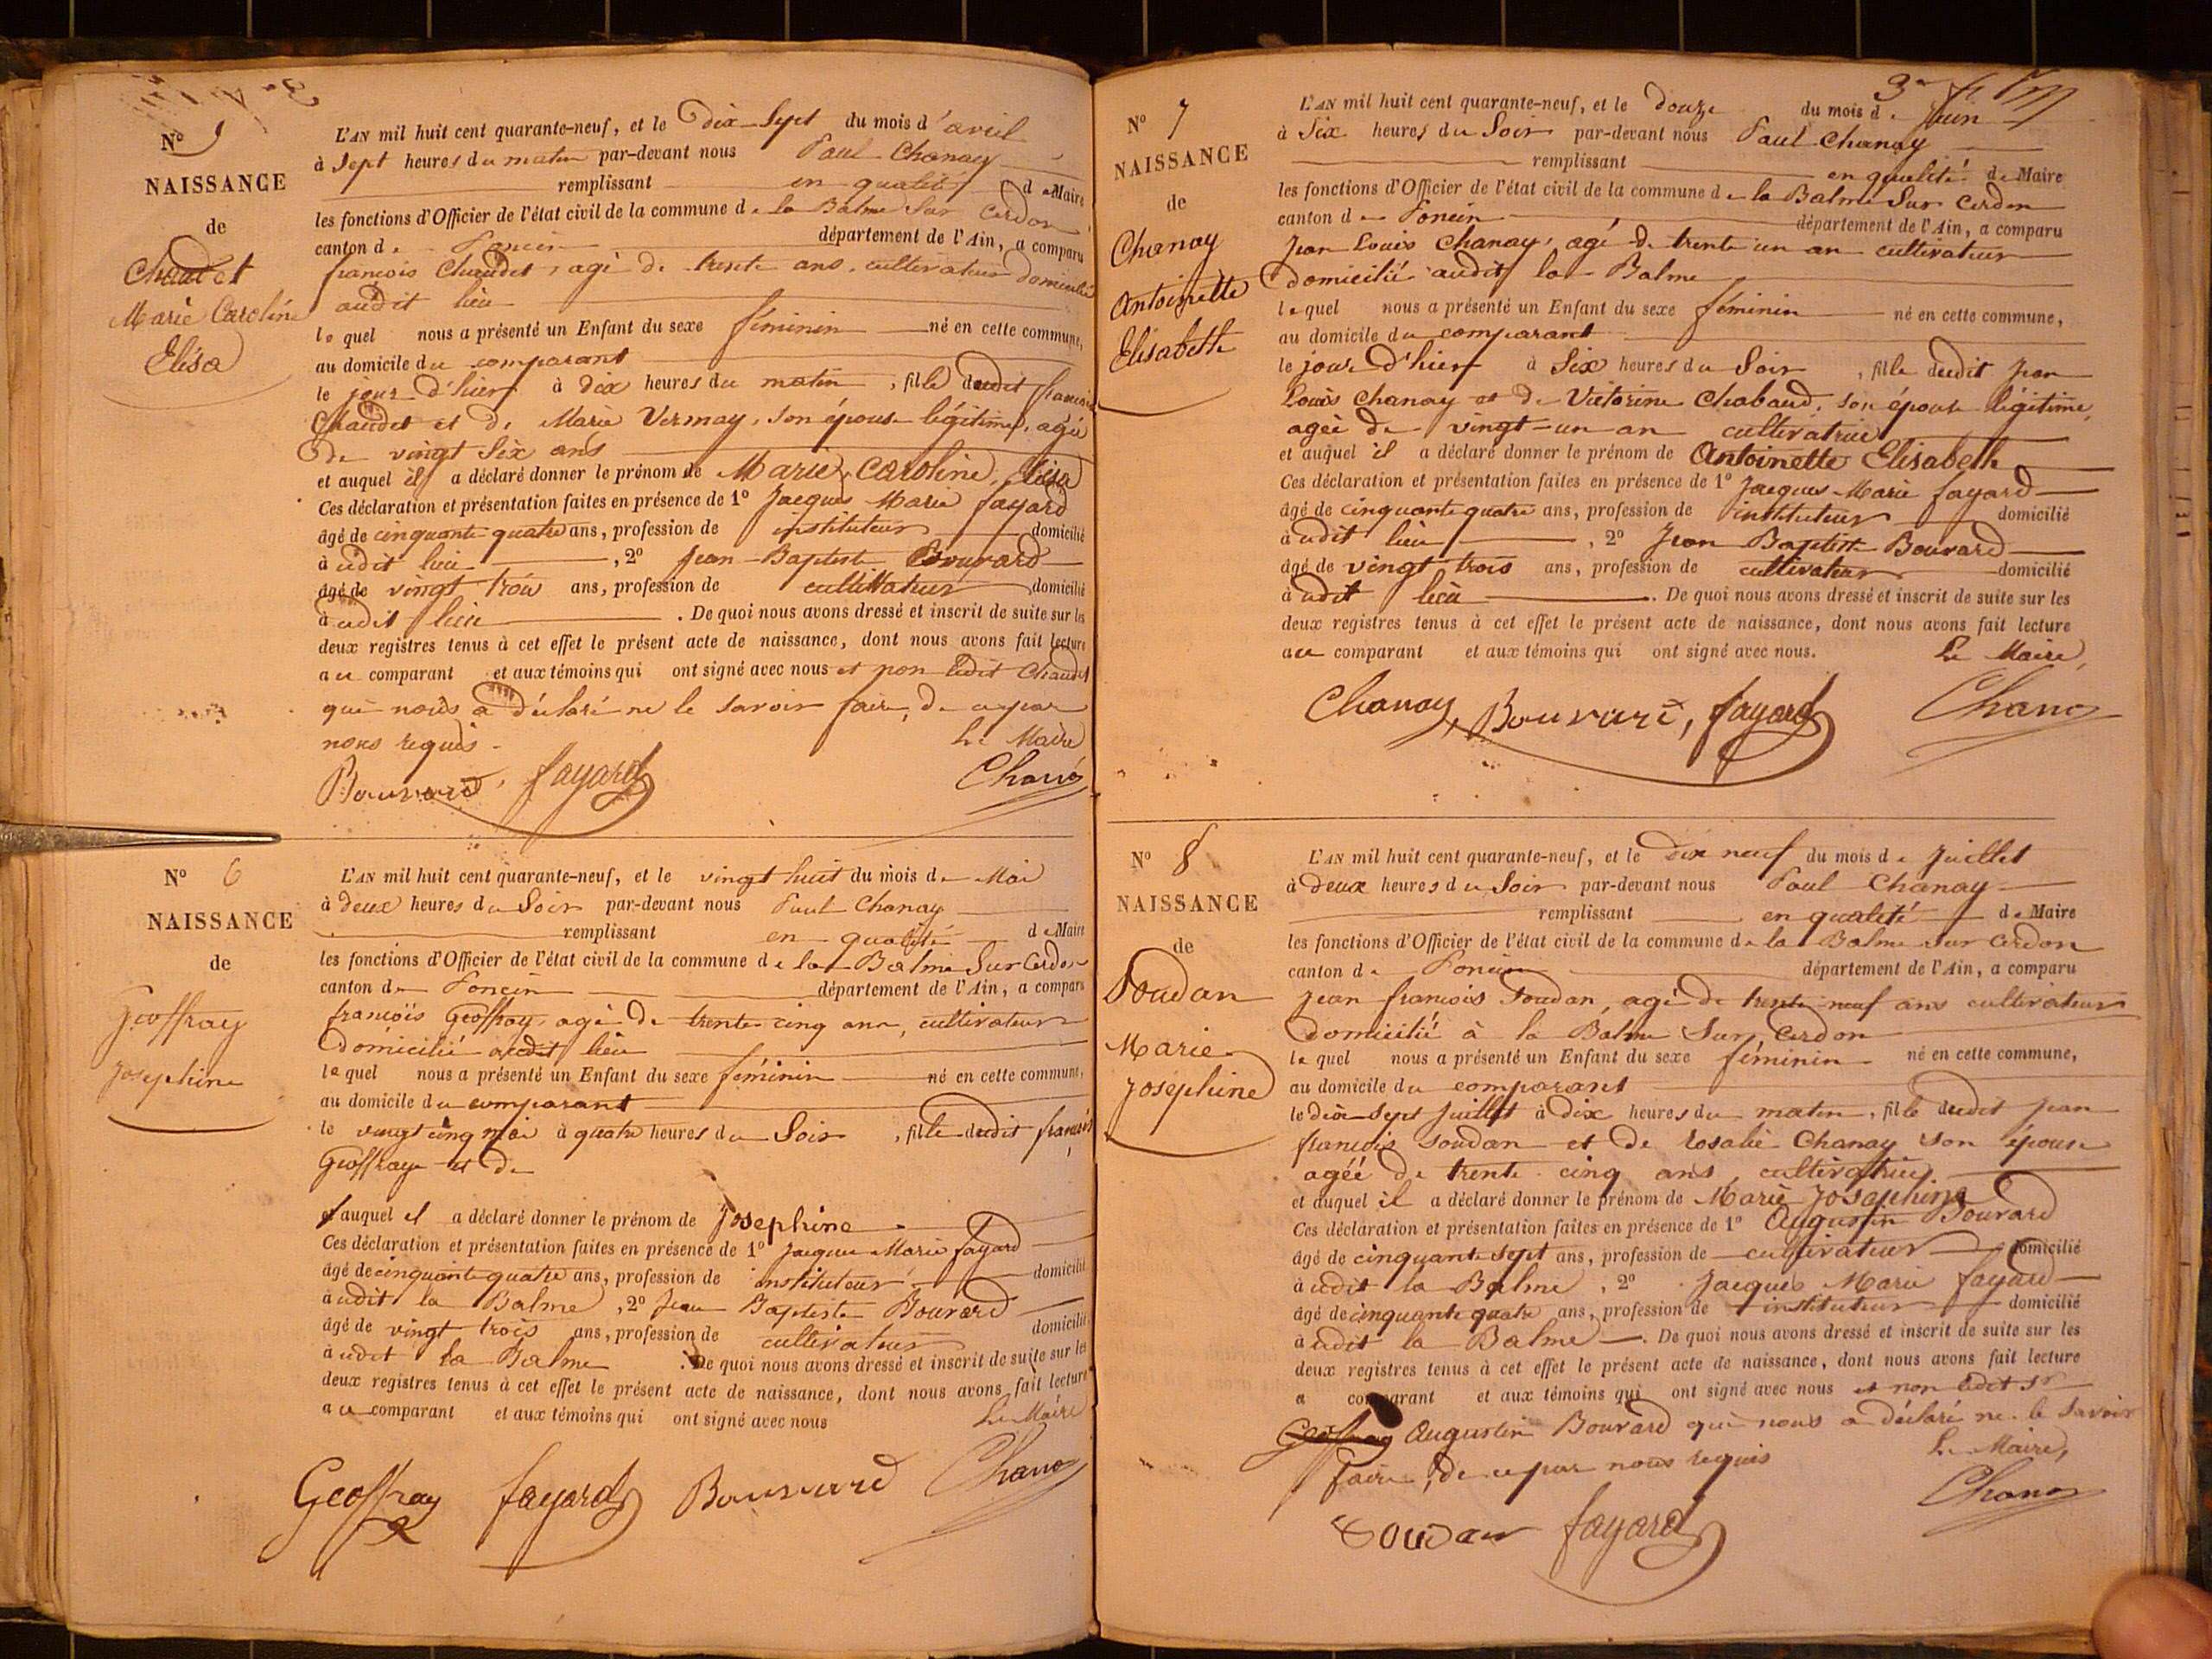 No 5
NAISSANCE
de
Chaudet
Marie Caroline
Elisa
L'AN mil huit cent quarante-neuf, et le dix-Sept du mois d'avril
à Sept heures du matin par-devant nous Paul Chanay
remplissant en qualité de Maire
les fonctions d'Officier de l'état civil de la commune de la Balme Sur Cerdon
canton de Poncin département de l'Ain, a comparu
françois Chaudet, agé de trente ans, cultivateur domicilié
audit lieu
lequel nous a présenté un Enfant du sexe féminin né en cette commune,
au domicile du comparant
le jour d'hier à dix heures du matin, fille dudit françois
Chaudet et de Marie Vermay, son épouse légitime, agée
de vingt Six ans
et auquel il a déclaré donner le prénom de Marie, Caroline, Elisa
Ces déclaration et présentation faites en présence de 1º Jacques Marie fayard
âgé de cinquante quatre ans, profession de instituteur domicilié
audit lieu, 2º Jean-Baptiste Bouvard
âgé de vingt trois ans, profession de cultivateur domicilié
audit lieu. De quoi nous avons dressé et inscrit de suite sur les
deux registres tenus à cet effet le présent acte de naissance, dont nous avons fait lecture
au comparant et aux témoins qui ont signé avec nous et non ledit Chaudet
qui nous a déclaré ne le savoir faire, de ce par
nous requis.
Le Maire
Bouvard, fayard Chanay
No 6
NAISSANCE
de
Geoffray
Josephine
L'AN mil huit cent quarante-neuf, et le vingt huit du mois de Mai
à deux heures du Soir par-devant nous Paul Chanay
remplissant en qualité de Maire
les fonctions d'Officier de l'état civil de la commune de la Balme Sur Cerdon
canton de Poncin département de l'Ain, a comparu
françois Geoffray, agé de trente cinq ans, cultivateur
Domicilié audit lieu
lequel nous a présenté un Enfant du sexe féminin né en cette commune,
au domicile du comparant
le vingt cinq mai à quatre heures du Soir, fille dudit françois
Geoffray et de
et auquel il a déclaré donner le prénom de Josephine
Ces déclaration et présentation faites en présence de 1º Jacques Marie fayard
âgé de cinquante quatre ans, profession de instituteur domicilié
audit la Balme, 2º Jean Baptiste Bouvard
âgé de vingt trois ans, profession de cultivateur domicilié
audit la Balme. De quoi nous avons dressé et inscrit de suite sur les
deux registres tenus à cet effet le présent acte de naissance, dont nous avons fait lecture
au comparant et aux témoins qui ont signé avec nous
Le Maire
Geoffray fayard Bouvard Chanay
No 7
NAISSANCE
de
Chanay
Antoinette
Elisabeth
L'AN mil huit cent quarante-neuf, et le douze du mois de Juin
à Six heures du Soir par-devant nous Paul Chanay
remplissant en qualité de Maire
les fonctions d'Officier de l'état civil de la commune de la Balme Sur Cerdon
canton de Poncin département de l'Ain, a comparu
Jean Louis Chanay, agé de trente un an cultivateur
domicilié audit la Balme
lequel nous a présenté un Enfant du sexe féminin né en cette commune,
au domicile du comparant
le jour d'hier à Six heures du Soir, fille dudit Jean
Louis Chanay et de Victorine Chabaud, son épouse légitime,
agée de vingt-un an cultivatrice
et auquel il a déclaré donner le prénom de Antoinette Elisabeth
Ces déclaration et présentation faites en présence de 1º Jacques-Marie fayard
âgé de cinquante quatre ans, profession de instituteur domicilié
audit lieu, 2º Jean Baptiste Bouvard
âgé de vingt trois ans, profession de cultivateur domicilié
à udit lieu. De quoi nous avons dressé et inscrit de suite sur les
deux registres tenus à cet effet le présent acte de naissance, dont nous avons fait lecture
au comparant et aux témoins qui ont signé avec nous. Le Maire,
Chanay, Bouvard, fayard Chanay
No 8
NAISSANCE
de
Soudan
Marie
Joséphine
L'AN mil huit cent quarante-neuf, et le dix neuf du mois de Juillet
à deux heures du Soir par-devant nous Paul Chanay
remplissant en qualité de Maire
les fonctions d'Officier de l'état civil de la commune de la Balme sur Cerdon
canton de Poncin département de l'Ain, a comparu
Jean françois Soudan, agé de trente neuf ans cultivateur
domicilié à la Balme Sur Cerdon
lequel nous a présenté un Enfant du sexe féminin né en cette commune,
au domicile du comparant
le dix-Sept Juillet à dix heures du matin, fille dudit Jean
françois Soudan et de Rosalie Chanay son épouse
agée de trente cinq ans cultivatrice
et auquel il a déclaré donner le prénom de Marie Josephine
Ces déclaration et présentation faites en présence de 1º Augustin Bouvard
âgé de cinquante sept ans, profession de cultivateur domicilié
audit la Balme, 2º Jacques Marie fayard
âgé de cinquante quatre ans, profession de instituteur domicilié
audit la Balme. De quoi nous avons dressé et inscrit de suite sur les
deux registres tenus à cet effet le présent acte de naissance, dont nous avons fait lecture
a comparant et aux témoins qui ont signé avec nous et non ledit Sr
Geoffray Augustin Bouvard qui nous a déclaré ne le savoir
faire, de ce par nous requis
Le Maire,
Soudan fayard Chanay